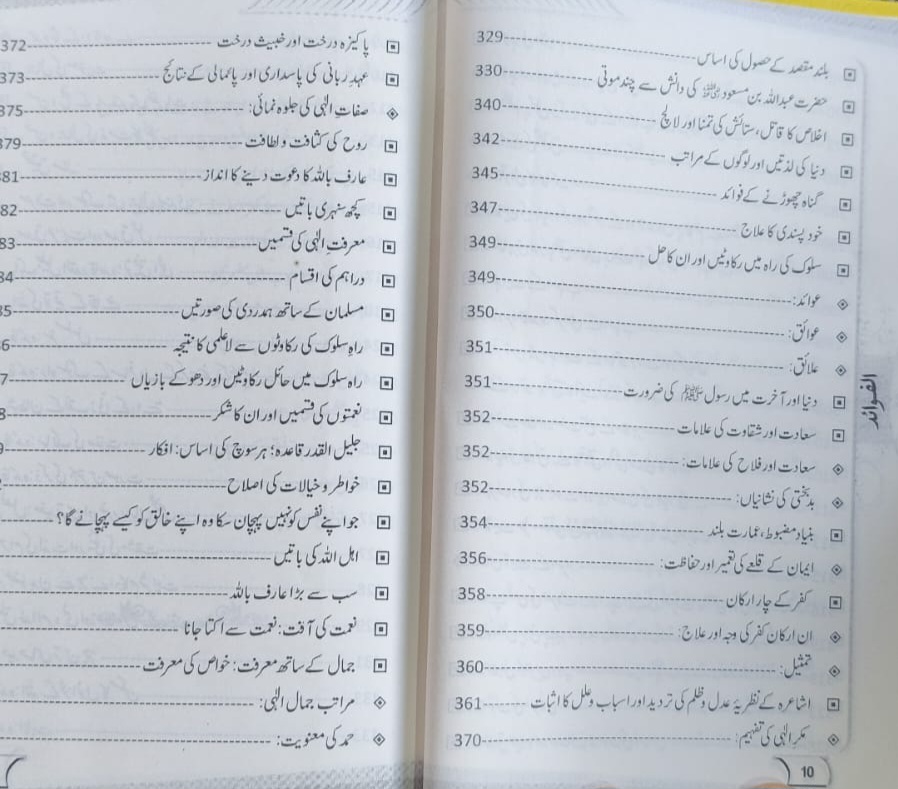 بلند مقصد کے حصول کی اساس 329
حضرت عبداللہ بن مسعود رضی اللہ عنہ کی دانش سے چند موتی 330
اخلاص کا قاتل، ستائش کی تمنا اور لالچ 340
دنیا کی لذتیں اور لوگوں کے مراتب 342
گناہ چھوڑنے کے فوائد 345
خود پسندی کا علاج 347
سلوک کی راہ میں رکاوٹیں اور ان کا حل 349
عوائد: 349
عوائق: 350
علائق: 351
دنیا اور آخرت میں رسول ﷺ کی ضرورت 351
سعادت اور شقاوت کی علامات 352
سعادت اور فلاح کی علامات: 352
بدبختی کی نشانیاں: 352
بنیاد مضبوط، عمارت بلند 354
ایمان کے قلعے کی تعمیر اور حفاظت: 356
کفر کے چار ارکان 358
ان ارکان کفر کی وجہ اور علاج: 359
تمثیل: 360
اشاعرہ کے نظریۂ عدل و ظلم کی تردید اور اسباب و علل کا اثبات 361
مکر الٰہی کی تفہیم: 370
الفوائد
10
پاکیزہ درخت اور خبیث درخت 372
عہدِ ربانی کی پاسداری اور پائمالی کے نتائج 373
صفاتِ الٰہی کی جلوہ نمائی: 375
روح کی کثافت و لطافت 379
عارف باللہ کا دعوت دینے کا انداز 81
کچھ سنہری باتیں 82
معرفتِ الٰہی کی قسمیں 83
دراہم کی اقسام 84
مسلمان کے ساتھ ہمدردی کی صورتیں 5
راہِ سلوک کی رکاوٹوں سے لاعلمی کا نتیجہ 6
راہ سلوک میں حائل رکاوٹیں اور دھوکے بازیاں 7
نعمتوں کی قسمیں اور ان کا شکر
جلیل القدر قاعدہ؛ ہر سوچ کی اساس: افکار
خواطر و خیالات کی اصلاح
جو اپنے نفس کو نہیں پہچان سکا وہ اپنے خالق کو کیسے پہچانے گا؟
اہل اللہ کی باتیں
سب سے بڑا عارف باللہ
نعمت کی آفت: نعمت سے اکتا جانا
جمال کے ساتھ معرفت: خواص کی معرفت
مراتب جمال الٰہی:
حمد کی معنویت: